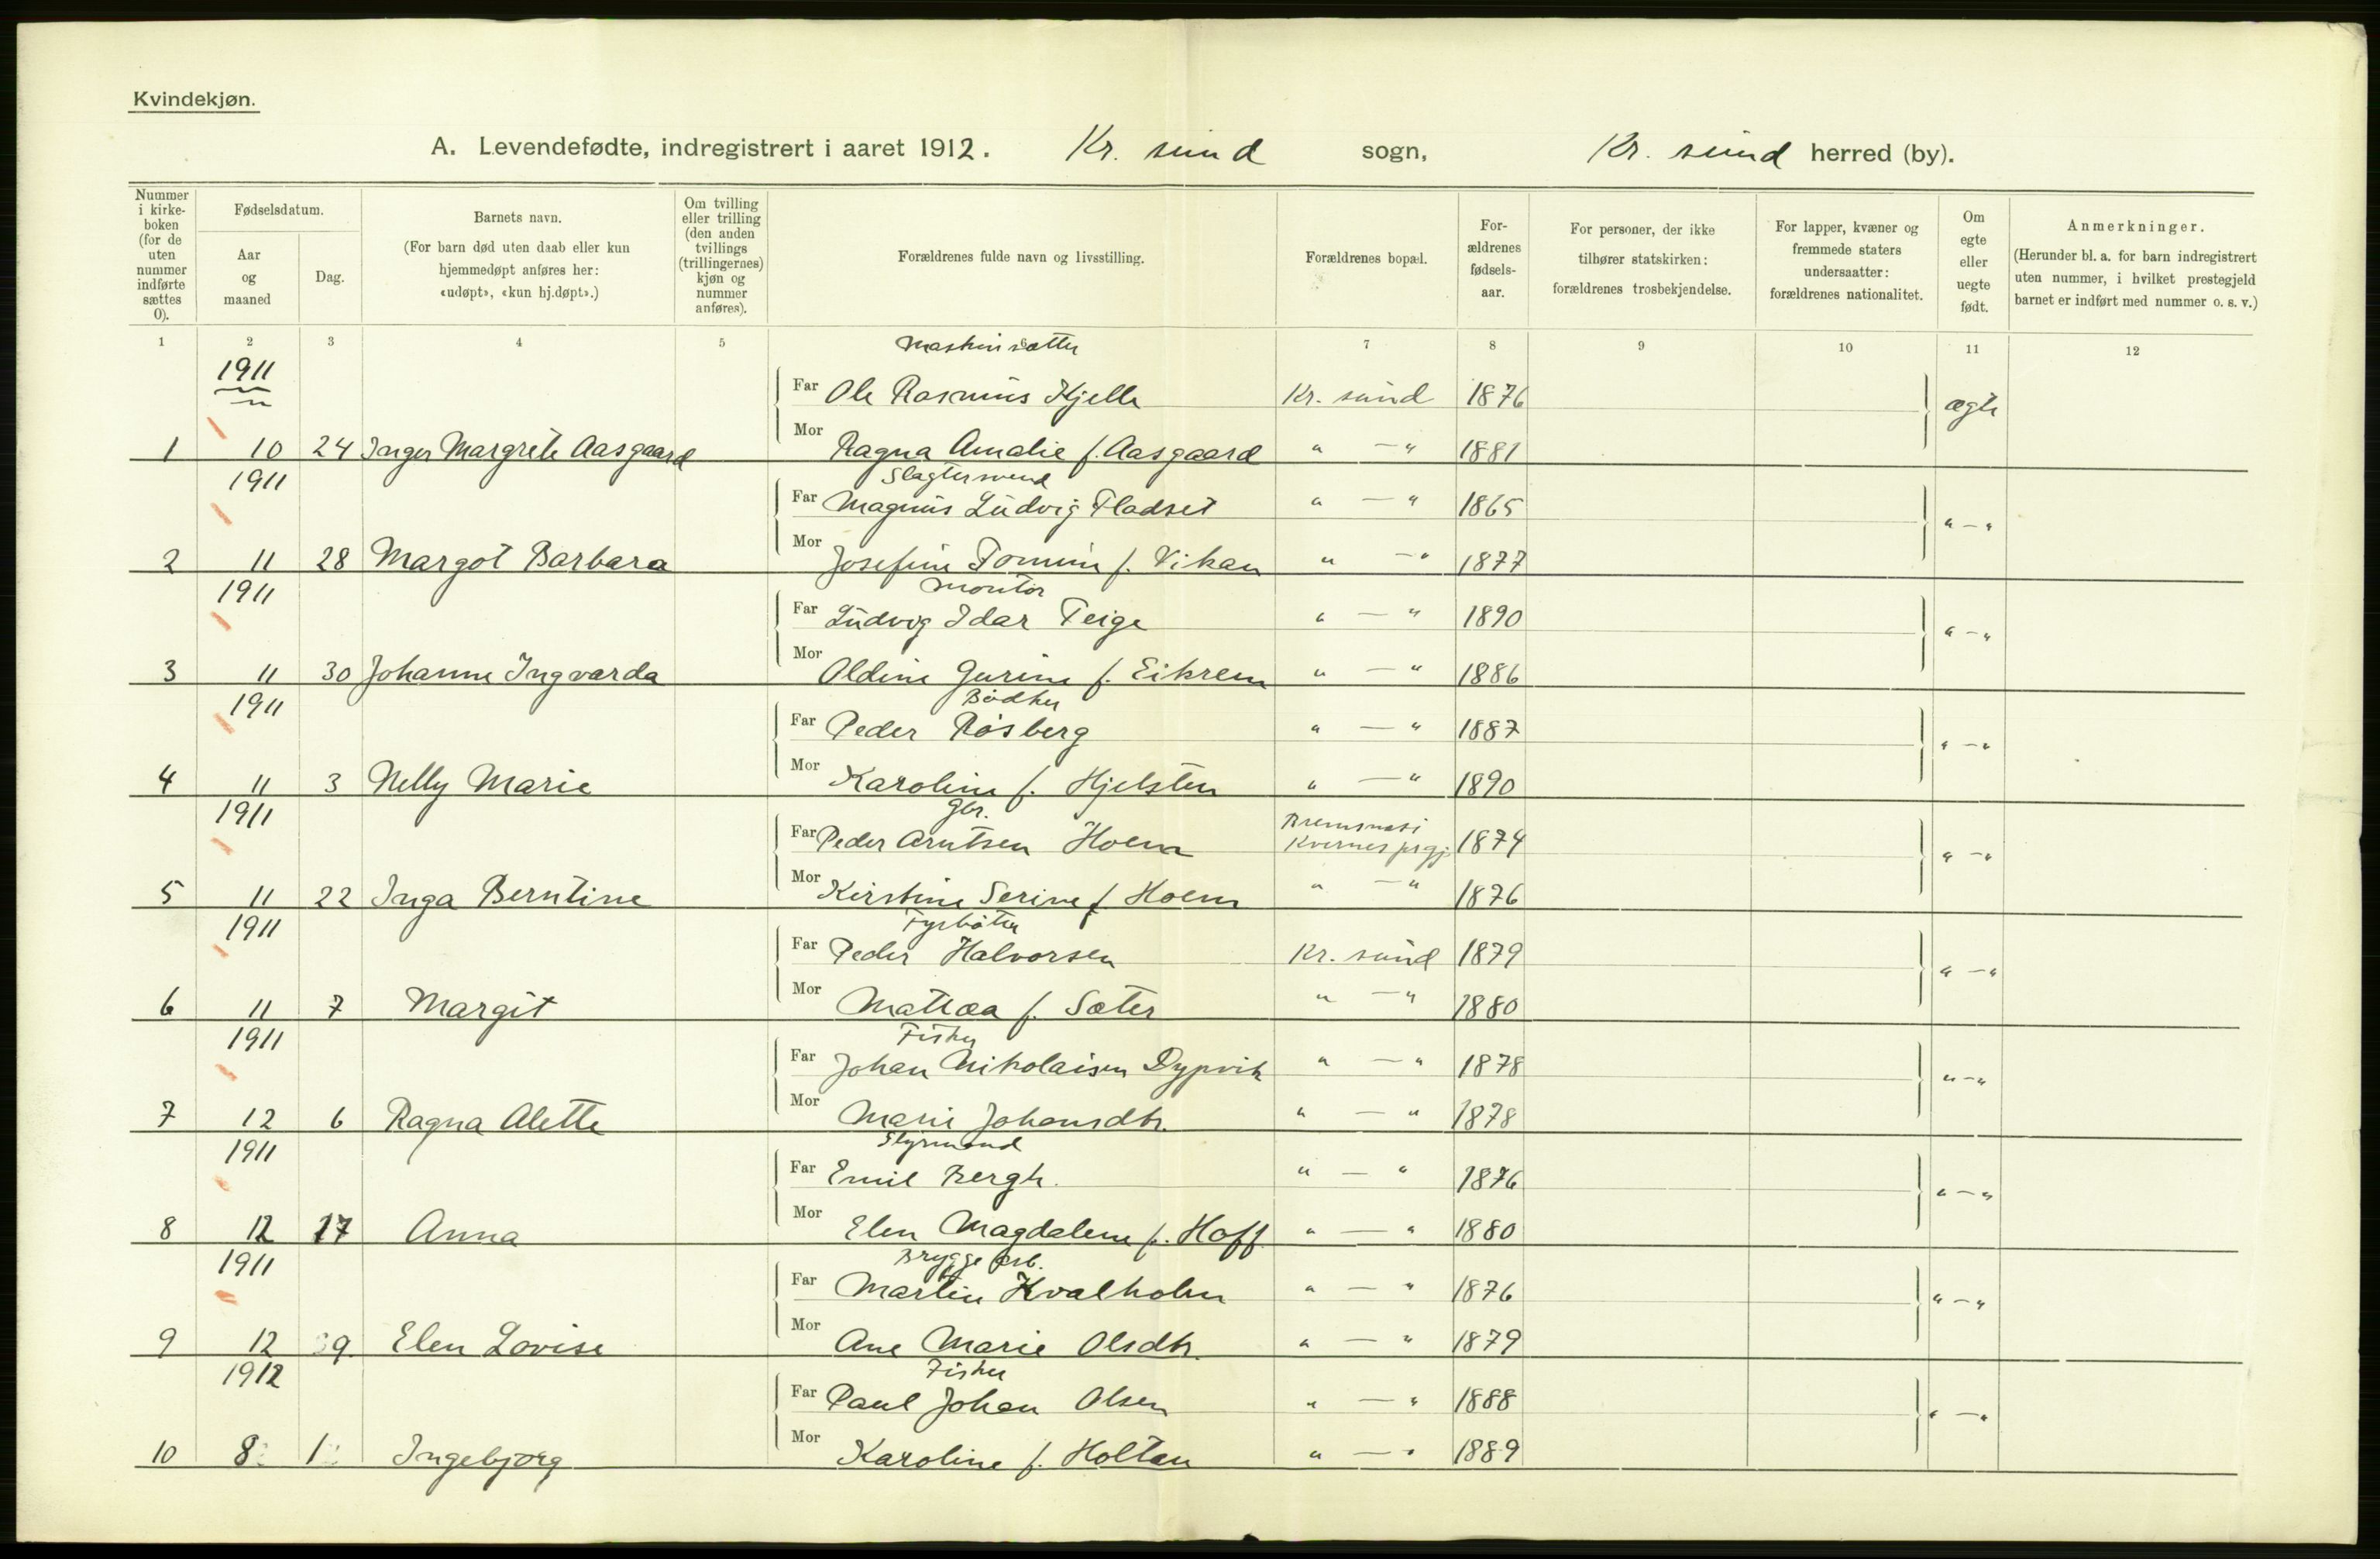 Kvindekjøn.
A. Levendefødte, indregistrert i aaret 1912. Kr. sund sogn, Kr. sund herred (by).
Nummer i kirke-boken (for de uten nummer indførte sættes 0).
Fødselsdatum.
Aar og maaned
Dag.
Barnets navn.
(For barn død uten daab eller kun hjemmedøpt anføres her: «udøpt», «kun hj.døpt».)
Om tvilling eller trilling (den anden tvillings (trillingernes) kjøn og nummer anføres).
Forældrenes fulde navn og livsstilling.
Forældrenes bopæl.
For-ældrenes fødsels-aar.
For personer, der ikke tilhører statskirken: forældrenes trosbekjendelse.
For lapper, kvæner og fremmede staters undersaatter: forældrenes nationalitet.
Om egte eller uegte født.
Anmerkninger.
(Herunder bl. a. for barn indregistrert uten nummer, i hvilket prestegjeld barnet er indført med nummer o. s. v.)
1 2 3 4 5 6 7 8 9 10 11 12
Maskinsætter
1911 Far Ole Rasmus Hjelle Kr. sund 1876 ægte
1 10 24 Inger Margrete Aasgaard Mor Ragna Amalie f. Aasgaard " — " 1881
Slagtersvend
1911 Far Magnus Ludvig Fladset " — " 1865 " — "
2 11 28 Margot Barbara Mor Josefine f. Vikan " — " 1877
Montør
1911 Far Ludvig Idar Teige " — " 1890 " — "
3 11 30 Johanne Ingvarda Mor Oldine Gurine f. Eikrem " — " 1886
Bødker
1911 Far Peder Røsberg " — " 1887 " — "
4 11 3 Nelly Marie Mor Karoline f. Hjelsten " — " 1890
Gbr.
1911 Far Peder Arntsen Hoem Bremsnes i Kvernes prgj. 1874 " — "
5 11 22 Inga Berntine Mor Kirstine Serine f. Hoem " — " 1876
Fyrbøter
1911 Far Peder Halvorsen Kr. sund 1879 " — "
6 11 7 Margit Mor Mattea f. Sæter " — " 1880
Fisker
1911 Far Johan Nikolaisen Dypvik " — " 1878 " — "
7 12 6 Ragna Alette Mor Marie Johansdtr. " — " 1878
Styrmand
1911 Far Emil Bergh. " — " 1876 " — "
8 12 17 Anna Mor Elen Magdalene f. Hoff " — " 1880
Bryggearb.
1911 Far Martin Kvalholm " — " 1876 " — "
9 12 9. Elen Lovise Mor Ane Marie Olsdtr. " — " 1879
Fisker
1912 Far Paul Johan Olsen " — " 1888 " — "
10 8 1 Ingebjørg Mor Karoline f. Holtan " — " 1889